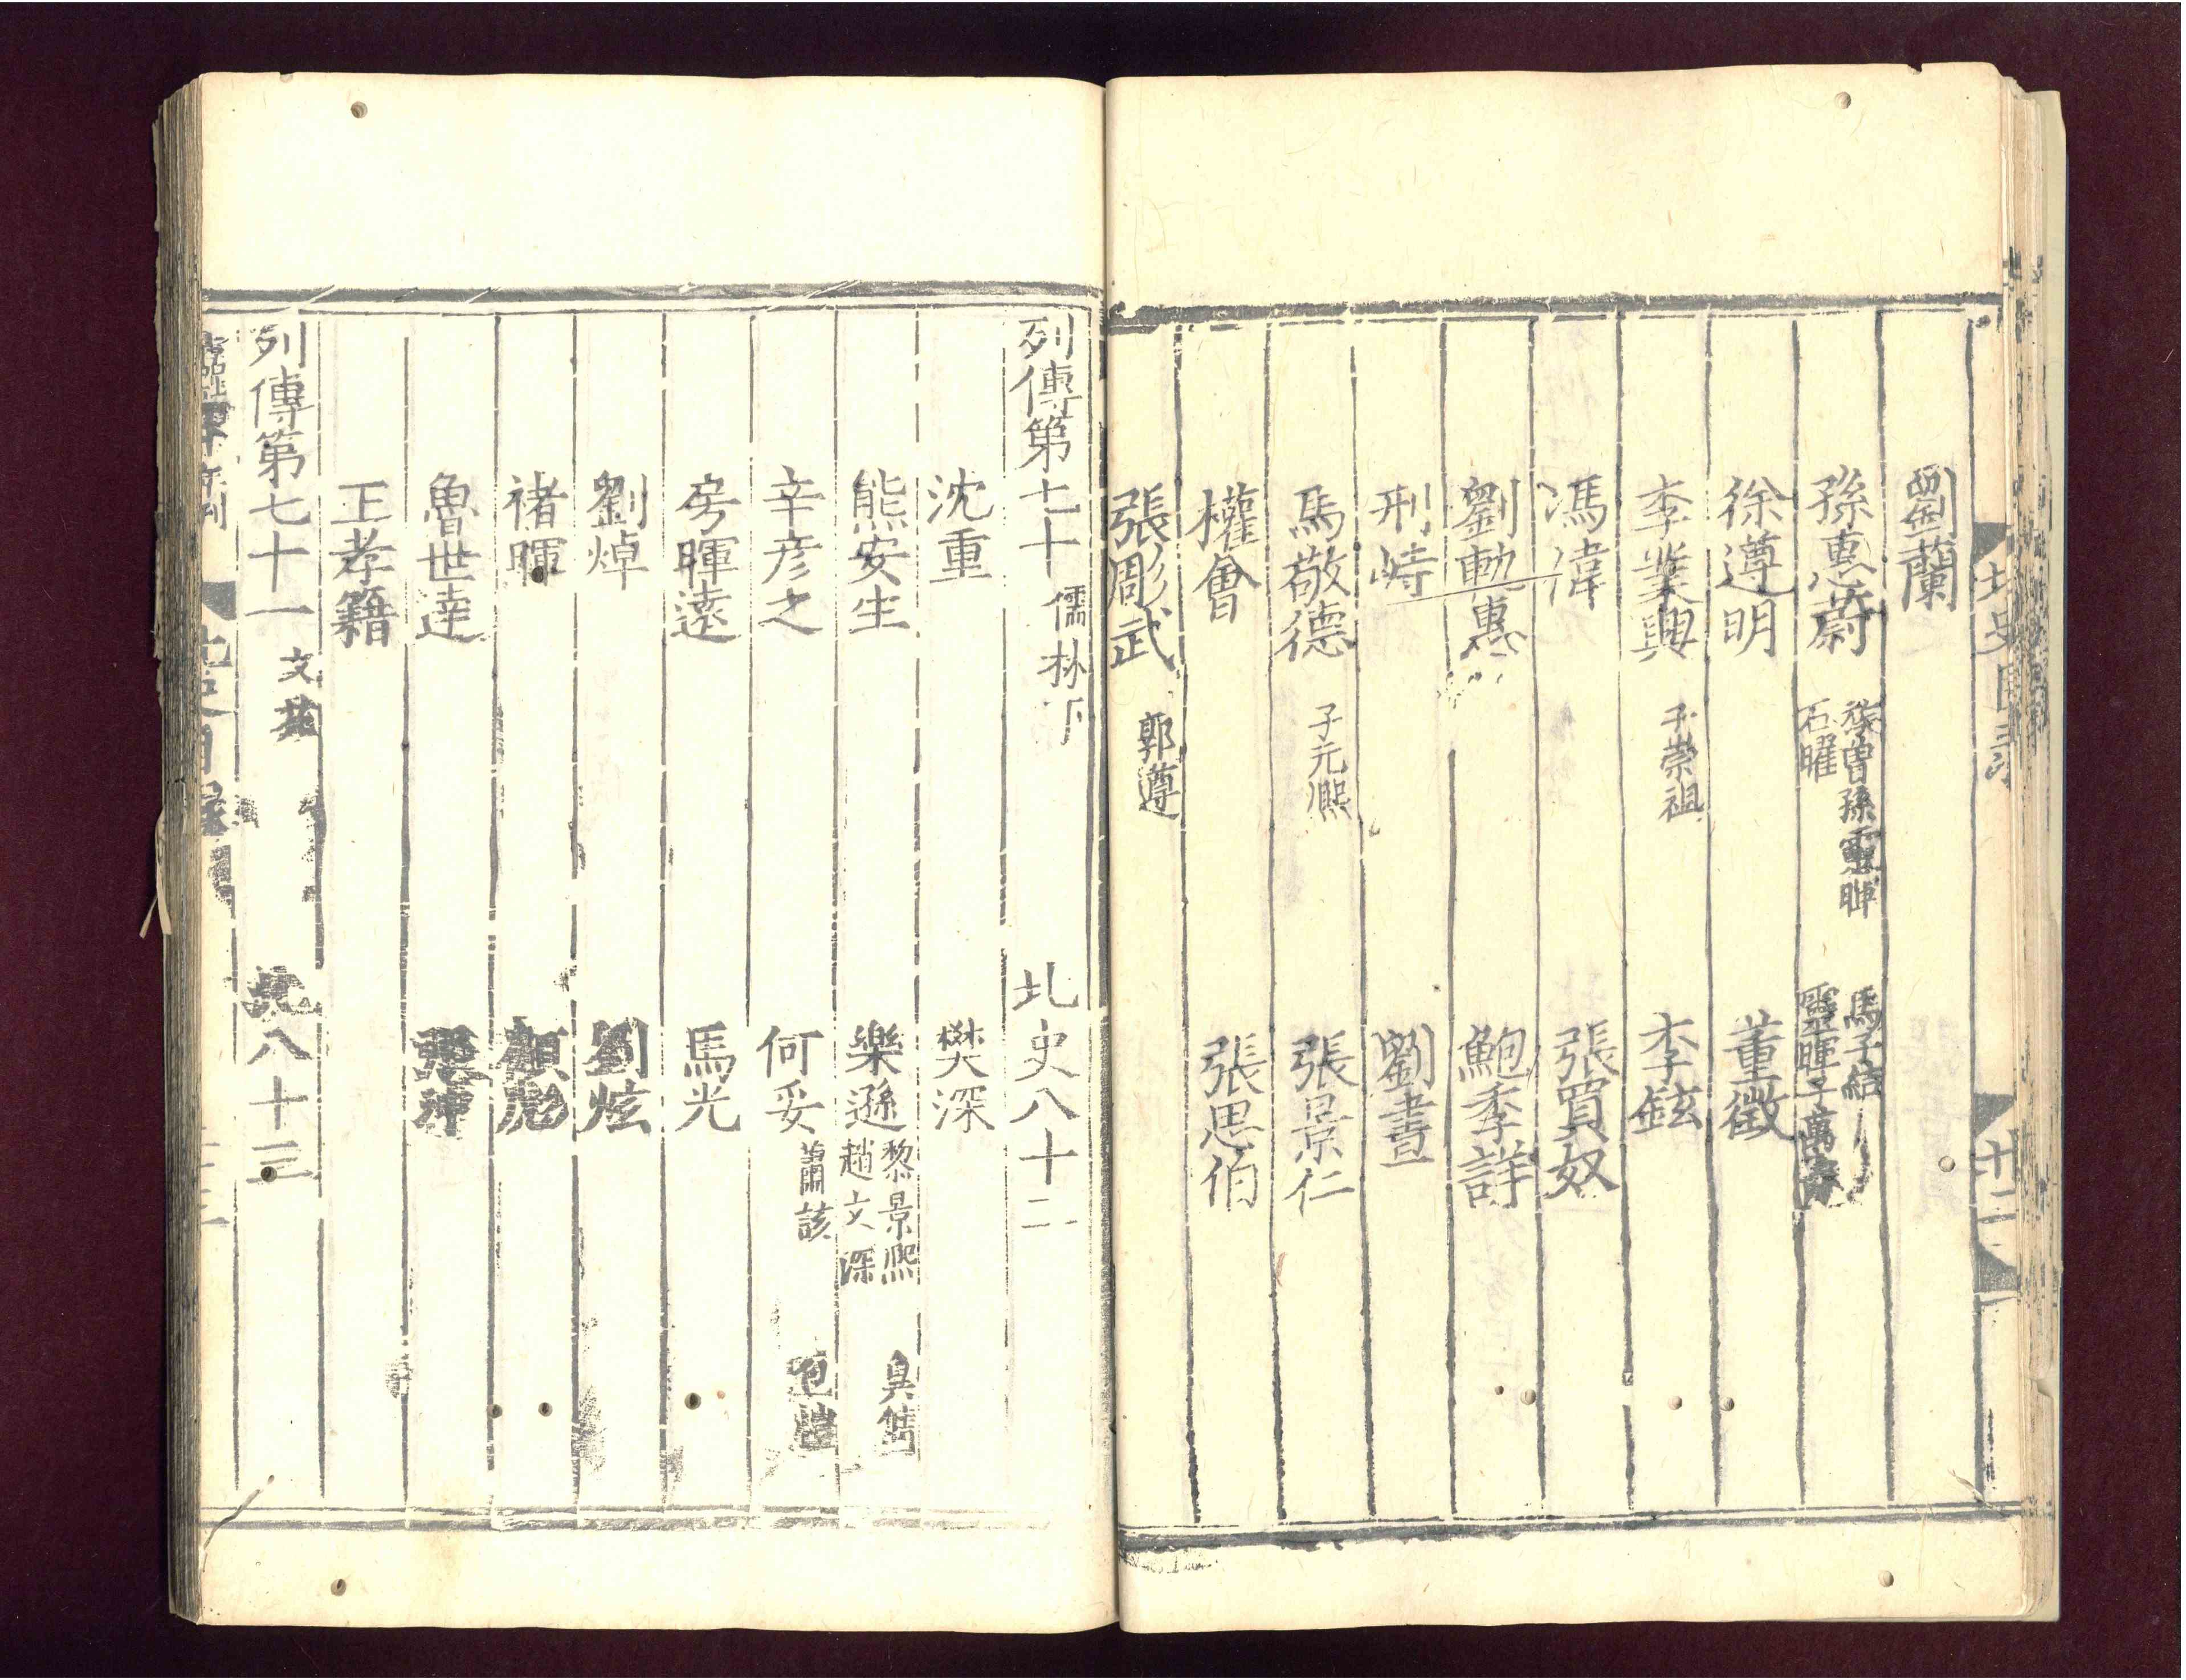 北史目录 廿二
劉蘭
孫惠蔚 族曾孫靈暉 馬子結
石曜 靈暉子萬壽
徐遵明 董徵
李業興 子崇祖 李鉉
馮偉 張買奴
劉軌惠 鮑季詳
刑峙 劉晝
馬敬德 子元熙 張景仁
權會 張思伯
張彫武 郭遵
列傳第七十 儒林下 北史八十二
沈重 樊深
熊安生 樂遜 黎景熙 冀儁
趙文深
辛彦之 何妥 蕭該 包愷
房暉遠 馬光
劉焯 劉炫
褚暉 顧彪
魯世達 張沖
王孝籍
列傳第七十一 文苑 八十三
北史目録